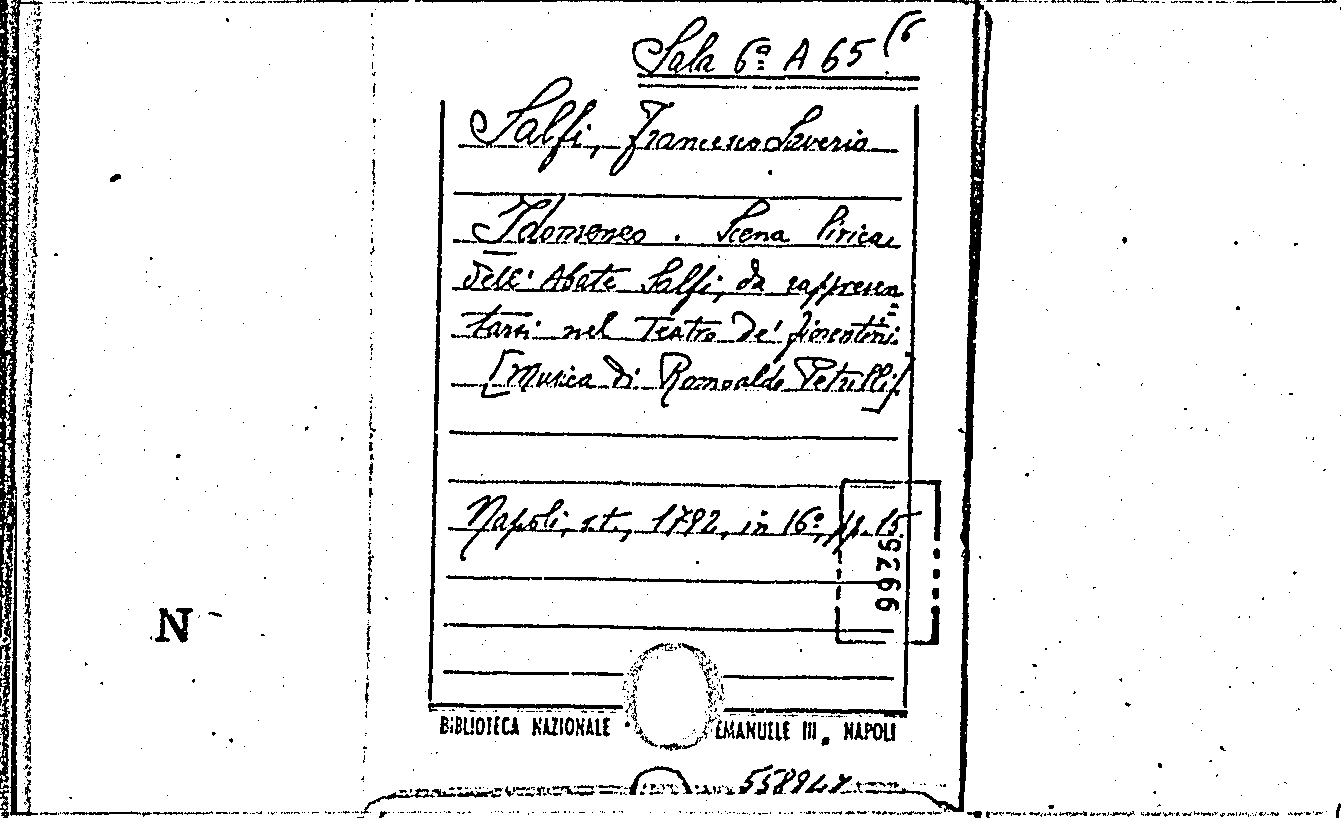 Sala 6ª A 65 (6
Salfi, Francesco Saverio
Idomeneo. Scena lirica
dell' Abate Salfi, da rappresen
tarsi nel Teatro de' fiorentini.
[Musica di Romoaldo Petrilli]
Napoli, s.t., 1792, in 16º, pp. 15
9936
N
BIBLIOTECA NAZIONALE EMANUELE III, NAPOLI